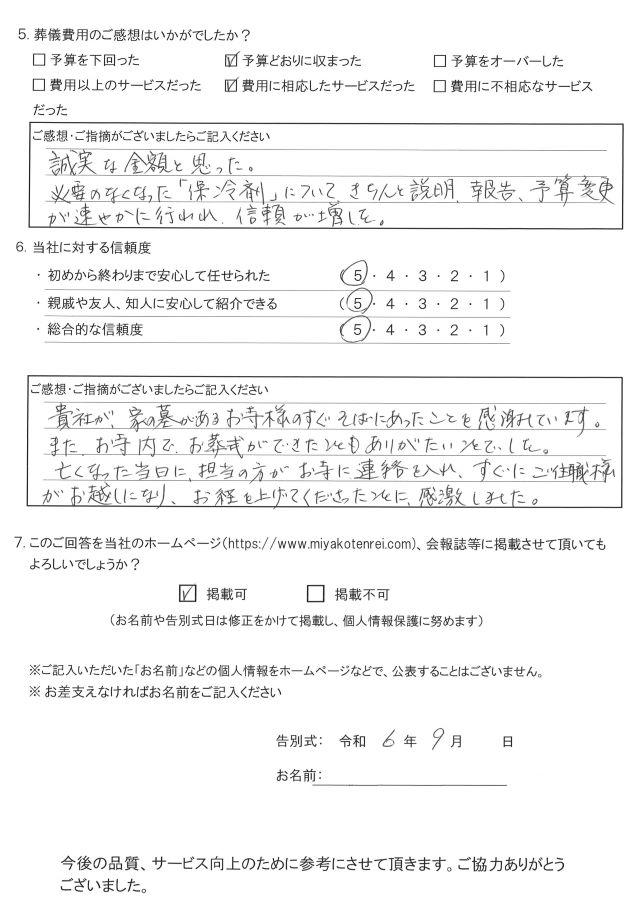 5. 葬儀費用のご感想はいかがでしたか？
□ 予算を下回った ☑ 予算どおりに収まった □ 予算をオーバーした
□ 費用以上のサービスだった ☑ 費用に相応したサービスだった □ 費用に不相応なサービス
だった
ご感想・ご指摘がございましたらご記入ください
誠実な金額と思った。
必要のなくなった「保冷剤」についてきちんと説明、報告、予算変更
が速やかに行われ、信頼が増した。
6. 当社に対する信頼度
・ 初めから終わりまで安心して任せられた （ 5 ・ 4 ・ 3 ・ 2 ・ 1 ）
・ 親戚や友人、知人に安心して紹介できる （ 5 ・ 4 ・ 3 ・ 2 ・ 1 ）
・ 総合的な信頼度 （ 5 ・ 4 ・ 3 ・ 2 ・ 1 ）
ご感想・ご指摘がございましたらご記入ください
貴社が、家の墓があるお寺様のすぐそばにあったことを感謝しています。
また、お寺内で、お葬式ができたこともありがたいことでした。
亡くなった当日に、担当の方がお寺に連絡を入れ、すぐにご住職様
がお越しになり、お経を上げてくださったことに、感激しました。
7. このご回答を当社のホームページ（https://www.miyakotenrei.com）、会報誌等に掲載させて頂いても
よろしいでしょうか？
☑ 掲載可 □ 掲載不可
（お名前や告別式日は修正をかけて掲載し、個人情報保護に努めます）
※ご記入いただいた「お名前」などの個人情報をホームページなどで、公表することはございません。
※ お差支えなければお名前をご記入ください
告別式： 令和 6 年 9 月 日
お名前：
今後の品質、サービス向上のために参考にさせて頂きます。ご協力ありがとう
ございました。